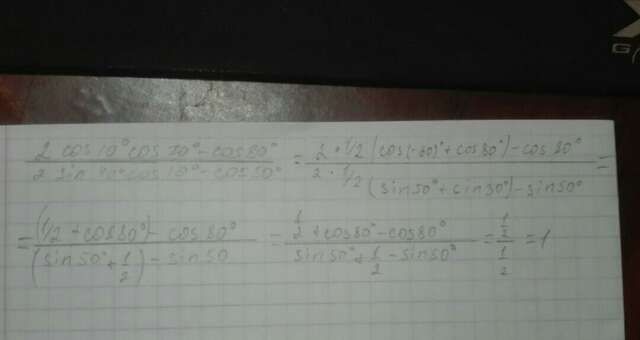 G
2 cos10° cos70° - cos80° / 2 sin40° cos10° - sin50° = 2 · 1/2 (cos(-60)° + cos80°) - cos80° / 2 · 1/2 (sin50° + sin30°) - sin50° =
= (1/2 + cos80°) - cos80° / (sin50° + 1/2) - sin50 = 1/2 + cos80° - cos80° / sin50° + 1/2 - sin50° = 1/2 / 1/2 = 1